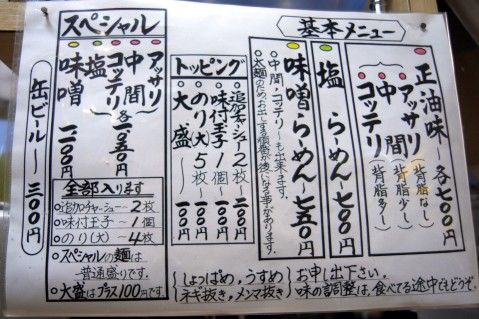 基本メニュー
正油味～各七〇〇円
アッサリ（背脂なし）
中間（背脂少し）
コッテリ（背脂多し）
塩らーめん～七〇〇円
味噌らーめん～七五〇円
○中間・コッテリーも出来ます。
○太麺のためお出しする順番が後になる事があります。
トッピング
○追加チャーシュー２枚～二〇〇円
○味付玉子１個～一〇〇円
○のり（大）５枚～一〇〇円
○大盛～一〇〇円
スペシャル
アッサリ
中間
コッテリ
塩
各一〇五〇円
味噌一一〇〇円
全部入ります
○追加チャーシュー～２枚
○味付玉子～１個
○のり（大）～４枚
○スペシャルの麺は
普通盛りです。
○大盛はプラス100円です。
缶ビール～三〇〇円
しょっぱめ，うすめ
ネギ抜き，メンマ抜き
お申し出下さい。
味の調整は、食べてる途中でもどうぞ。